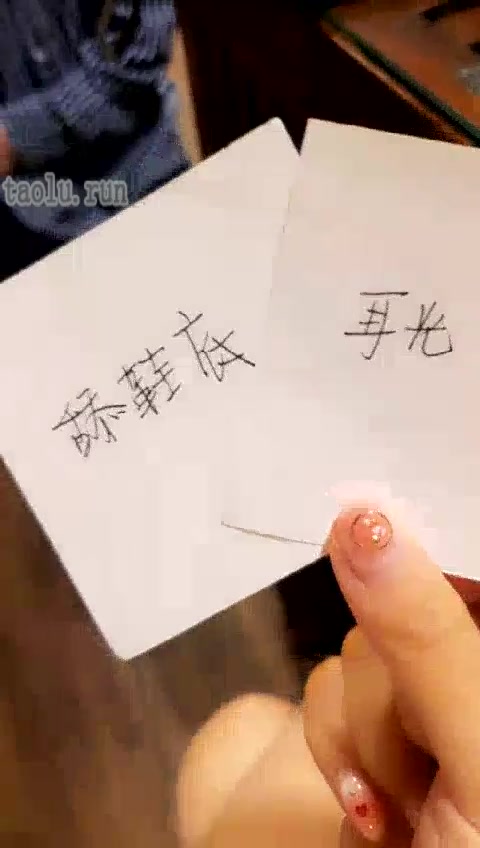 taolu.run
舔鞋底
耳光